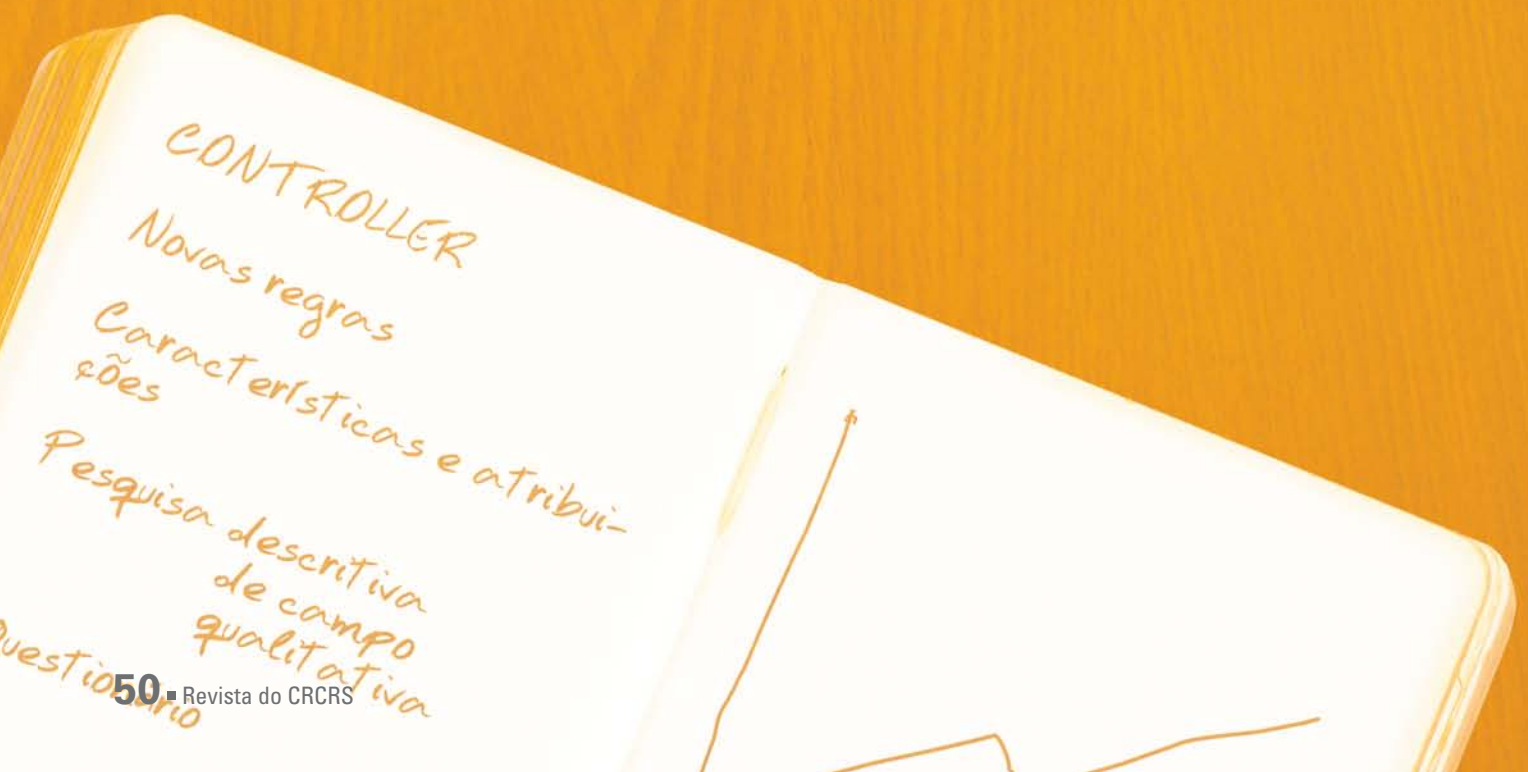 CONTROLLER
Novas regras
Características e atribui-
ções
Pesquisa descritiva
de campo
qualitativa
Questionário
50 ▪ Revista do CRCRS